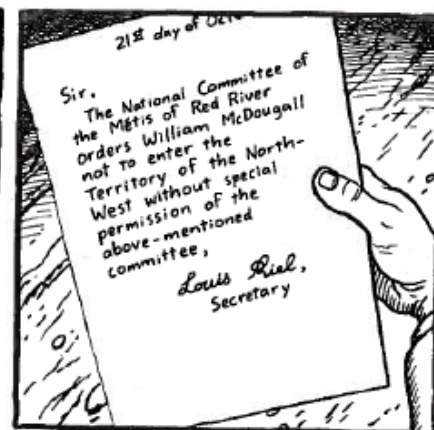 21st day of
Sir,
The National Committee of
the Métis of Red River
orders William McDougall
not to enter the
Territory of the North-
West without special
permission of the
above-mentioned
committee,
Louis Riel,
Secretary